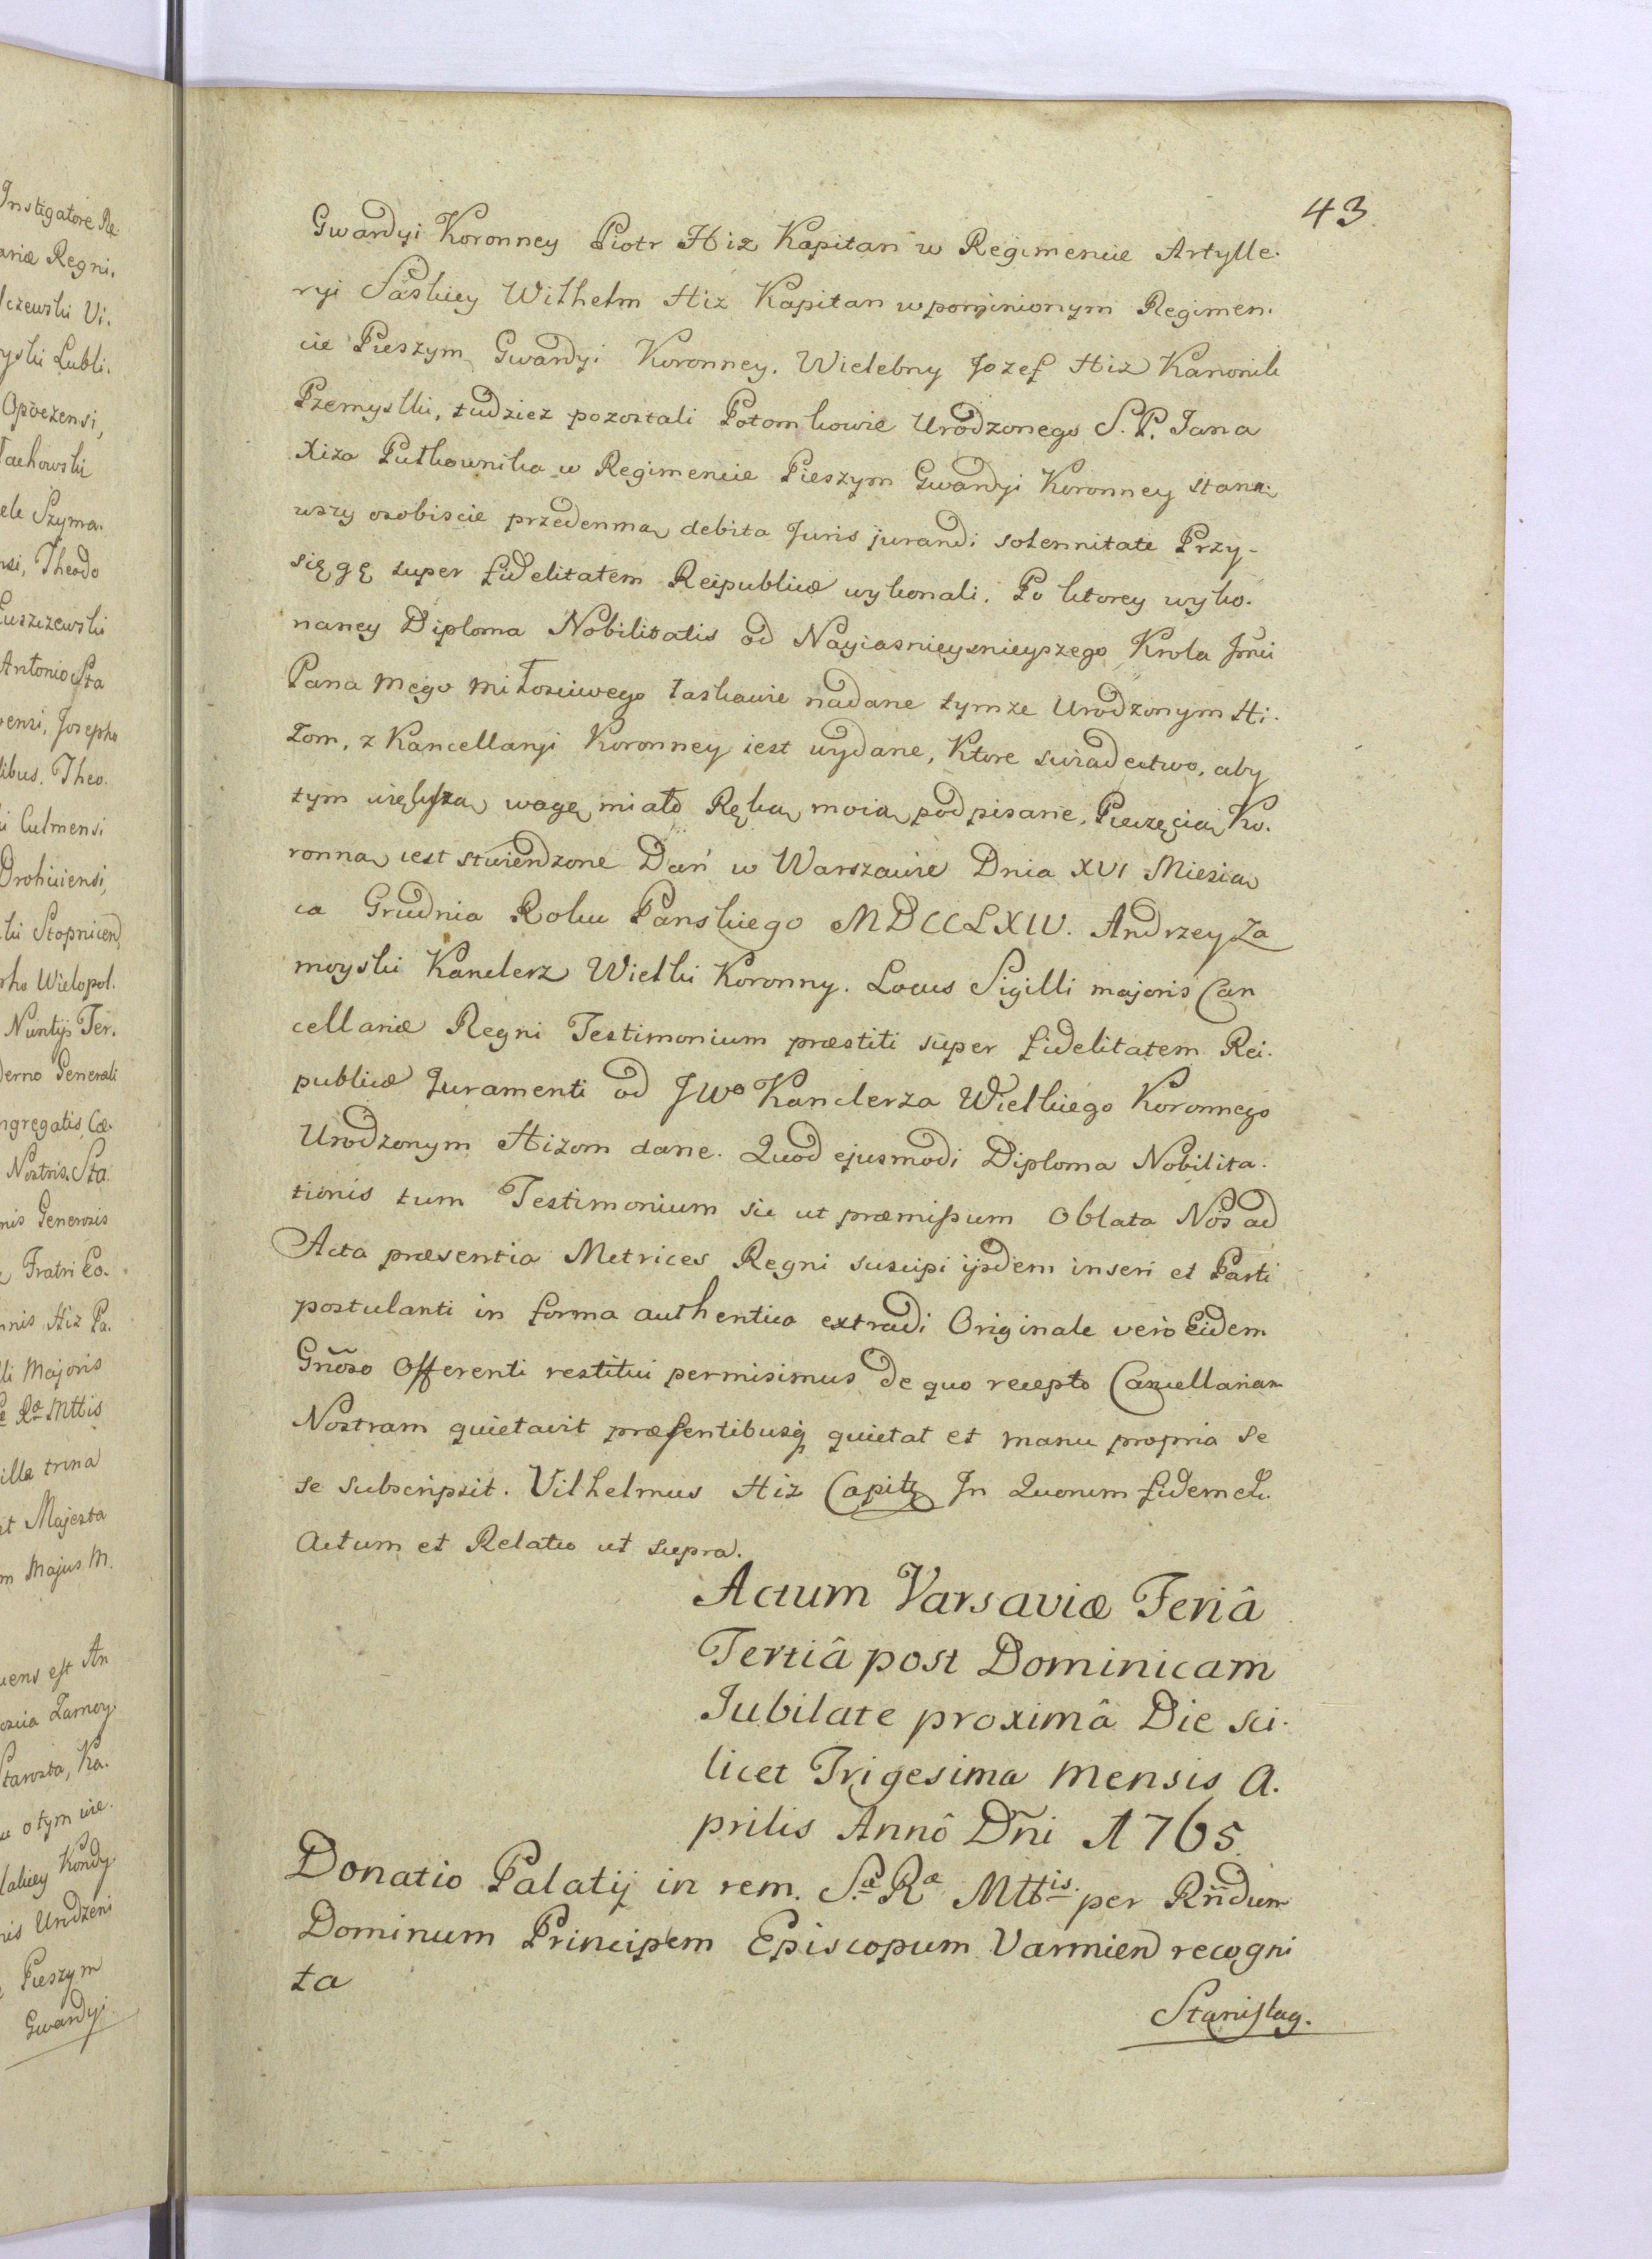 Instigatore Re
ariæ Regni.
lczewski Vi.
yski Lubli.
Opoczensi,
Tachowski
ele Szyma.
nsi, Theodo
Łuszczewski
Antonio Sta
vensi, Josepho
libus. Theo.
i Culmensi
Drohiciensi,
ki Stopnicen
rho Wielopol.
Nuntijs Ter.
derno Generali
ngregatis, Cæ.
Nostris. Sta.
nis Generosis
Fratri Co.
nnis Hiz Pa.
lli Majoris
Ræ Mttis
illa trina
et Majesta
m Majus M.
uens est An
oscia Zamoy.
Starosta, Ka.
o tym wie.
Kondy
nis Urodzeni
Pieszym
Gwardyi
43.
Gwardyi Koronney Piotr Hiz Kapitan w Regimencie Artylle.
ryi Saskiey Wilhelm Hiz Kapitan wpominionym Regimen.
cie Pieszym Gwardyi Koronney. Wielebny Jozef Hiz Kanonik
Pzemyslki, tudziez pozostali Potomkowie Urodzonego S. P. Jana
Xiza Pułkownika w Regimencie Pieszym Gwardyi Koronney stana.
wszy osobiscie przedemną debita Juris jurandi solennitate Przy-
sięgę super fidelitatem Reipublicæ wykonali. Po ktorey wyko.
naney Diploma Nobilitatis od Nayiasnieysnieyszego Krola Jmci
Pana Mego Miłosciwego łaskawie nadane tymze Urodzonym Hi.
zom, z Kancellaryi Koronney iest wydane, Ktore swiadectwo, aby
tym większą wagę miało Ręką moią podpisane, Pieczęcią Ko.
ronną iest stwierdzone Dań w Warszawie Dnia XVI Miesią
ca Grudnia Roku Panskiego MDCCLXIV. Andrzey Za
moyski Kanclerz Wielki Koronny. Locus Sigilli majoris Can
cellariæ Regni Testimonium præstiti super fidelitatem Rei.
publicæ Juramenti od JWo Kanclerza Wielkiego Koronnego
Urodzonym Hizom dane. Quod ejusmodi Diploma Nobilita.
tionis tum Testimonium sic ut præmissum Oblata Nos ad
Acta præsentia Metrices Regni suscipi ijsdem inseri et Parti
postulanti in forma authentica extradi Originale vero Eidem
Gnõso Offerenti restitui permisimus de quo recepto Cancellariam
Nostram quietavit præsentibusq quietat et manu propria se
se subscripsit. Vilhelmus Hiz Capitz In Quorum fidem etc.
Actum et Relatio ut supra.
Actum Varsaviæ Feriâ
Tertiâ post Dominicam
Jubilate proximâ Die sci.
licet Trigesima Mensis A.
prilis Annô Dñi 1765.
Donatio Palatij in rem. Sæ Ræ Mttis. per Rñdum
Dominum Principem Episcopum Varmien recogni
ta
Stanislag.